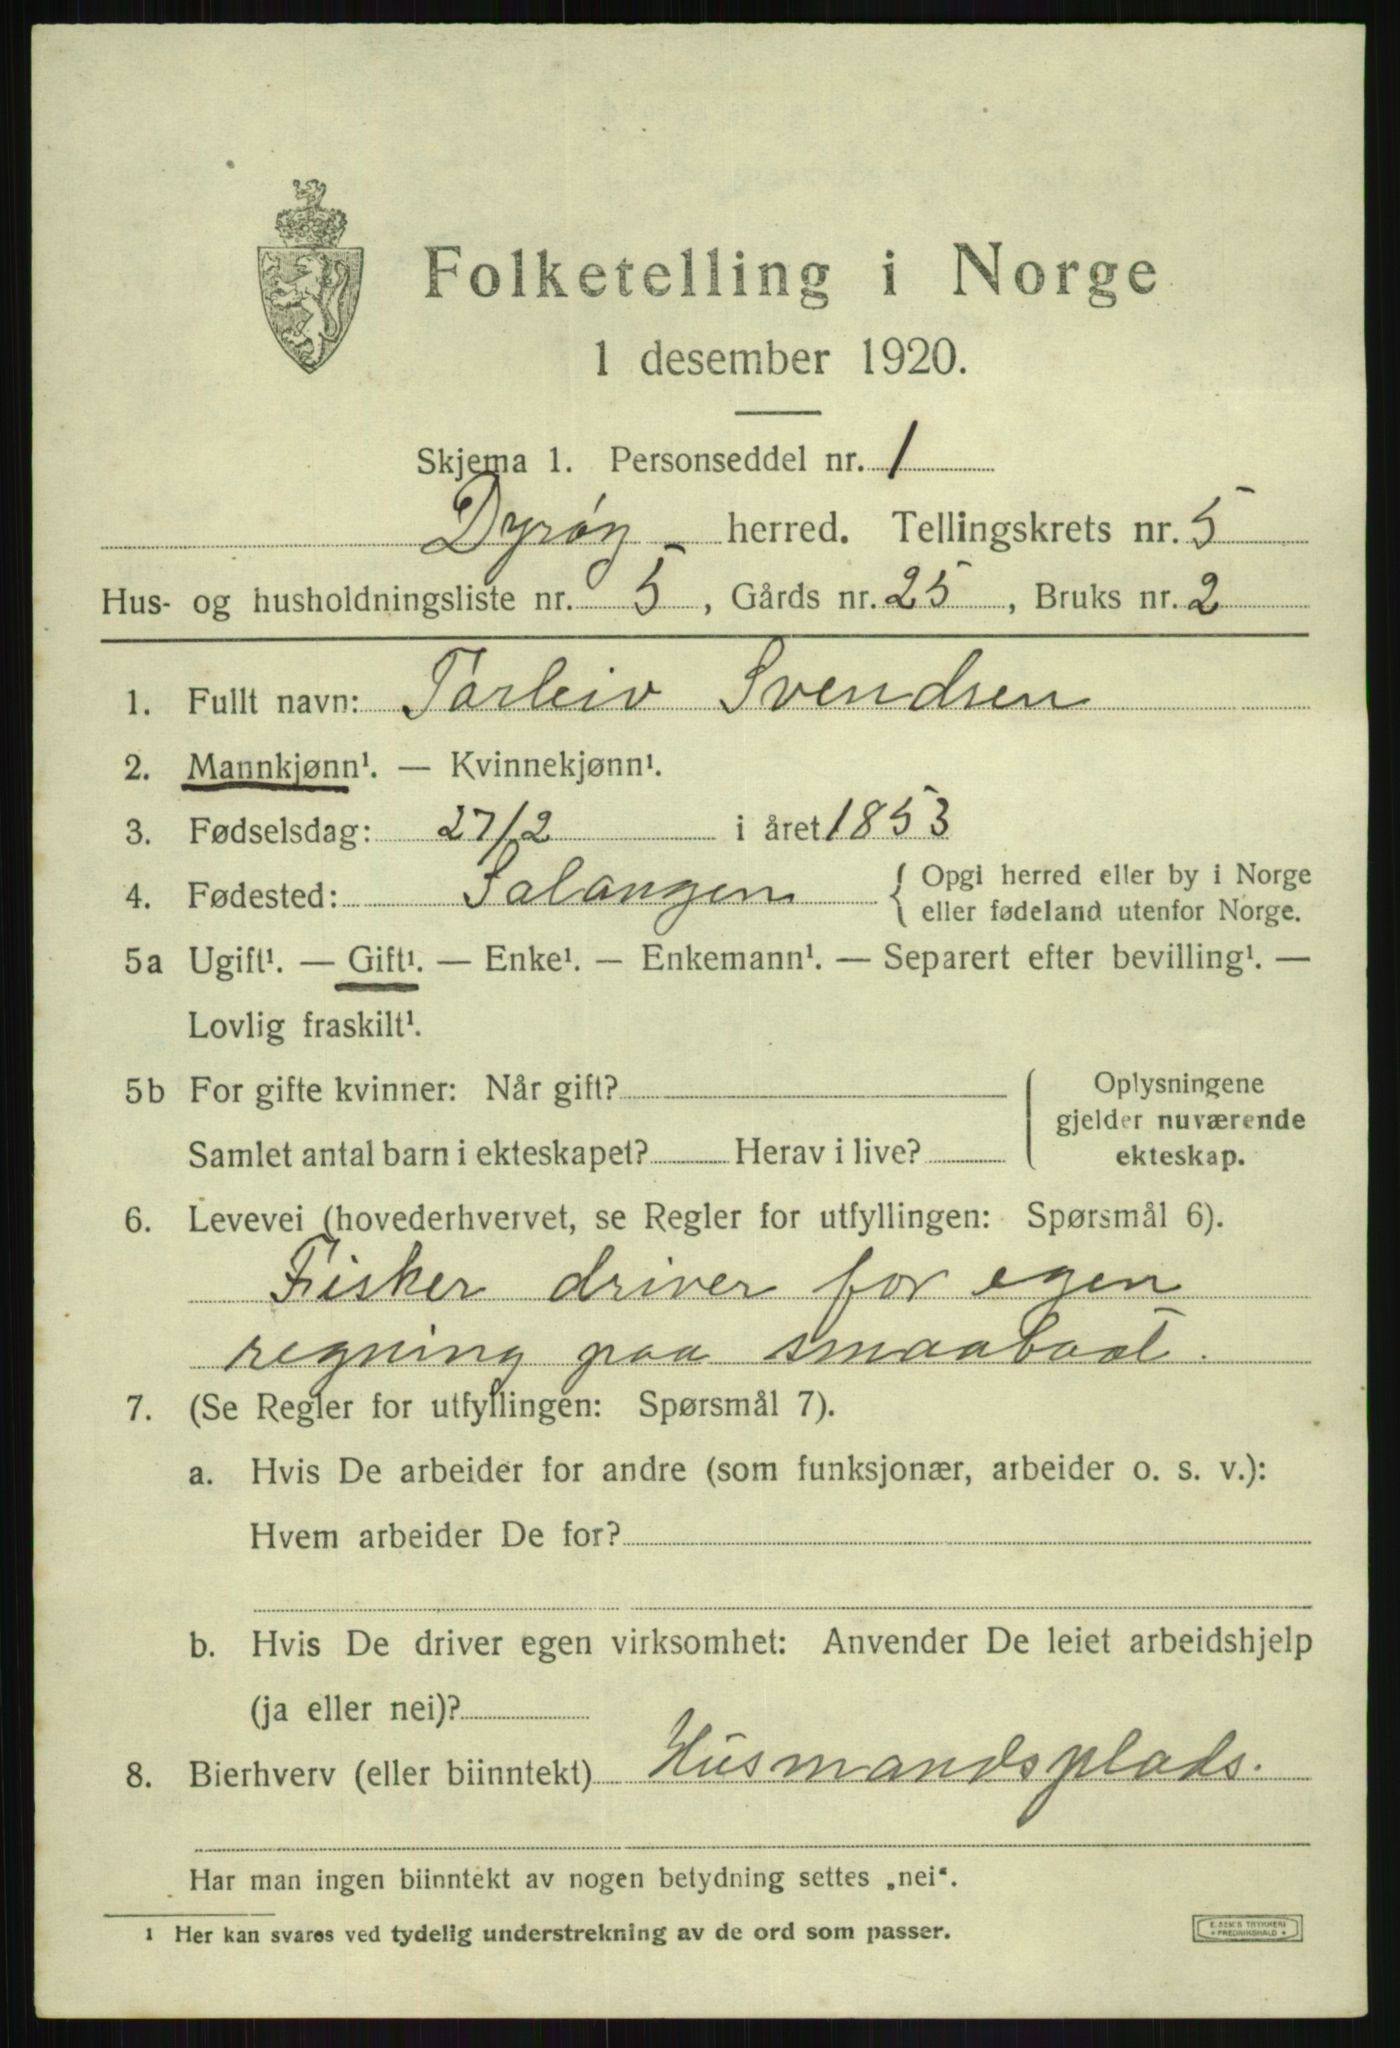 Folketelling i Norge
1 desember 1920.
Skjema 1. Personseddel nr. 1
Dyrøy herred. Tellingskrets nr. 5
Hus- og husholdningsliste nr. 5, Gårds nr. 25, Bruks nr. 2
1. Fullt navn: Torleiv Svendsen
2. Mannkjønn¹. — Kvinnekjønn¹.
3. Fødselsdag: 27/2 i året 1853
4. Fødested: Salangen { Opgi herred eller by i Norge
eller fødeland utenfor Norge.
5a Ugift¹. — Gift¹. — Enke¹. — Enkemann¹. — Separert efter bevilling¹. —
Lovlig fraskilt¹.
5b For gifte kvinner: Når gift?
Samlet antal barn i ekteskapet? Herav i live?
Oplysningene
gjelder nuværende
ekteskap.
6. Levevei (hovederhvervet, se Regler for utfyllingen: Spørsmål 6).
Fisker driver for egen
regning paa smaabaat.
7. (Se Regler for utfyllingen: Spørsmål 7).
a. Hvis De arbeider for andre (som funksjonær, arbeider o. s. v.):
Hvem arbeider De for?
b. Hvis De driver egen virksomhet: Anvender De leiet arbeidshjelp
(ja eller nei)?
8. Bierhverv (eller biinntekt) Husmandsplads.
Har man ingen biinntekt av nogen betydning settes „nei“.
1 Her kan svares ved tydelig understrekning av de ord som passer.
E. SEM'S TRYKKERI
* FREDRIKSHALD *